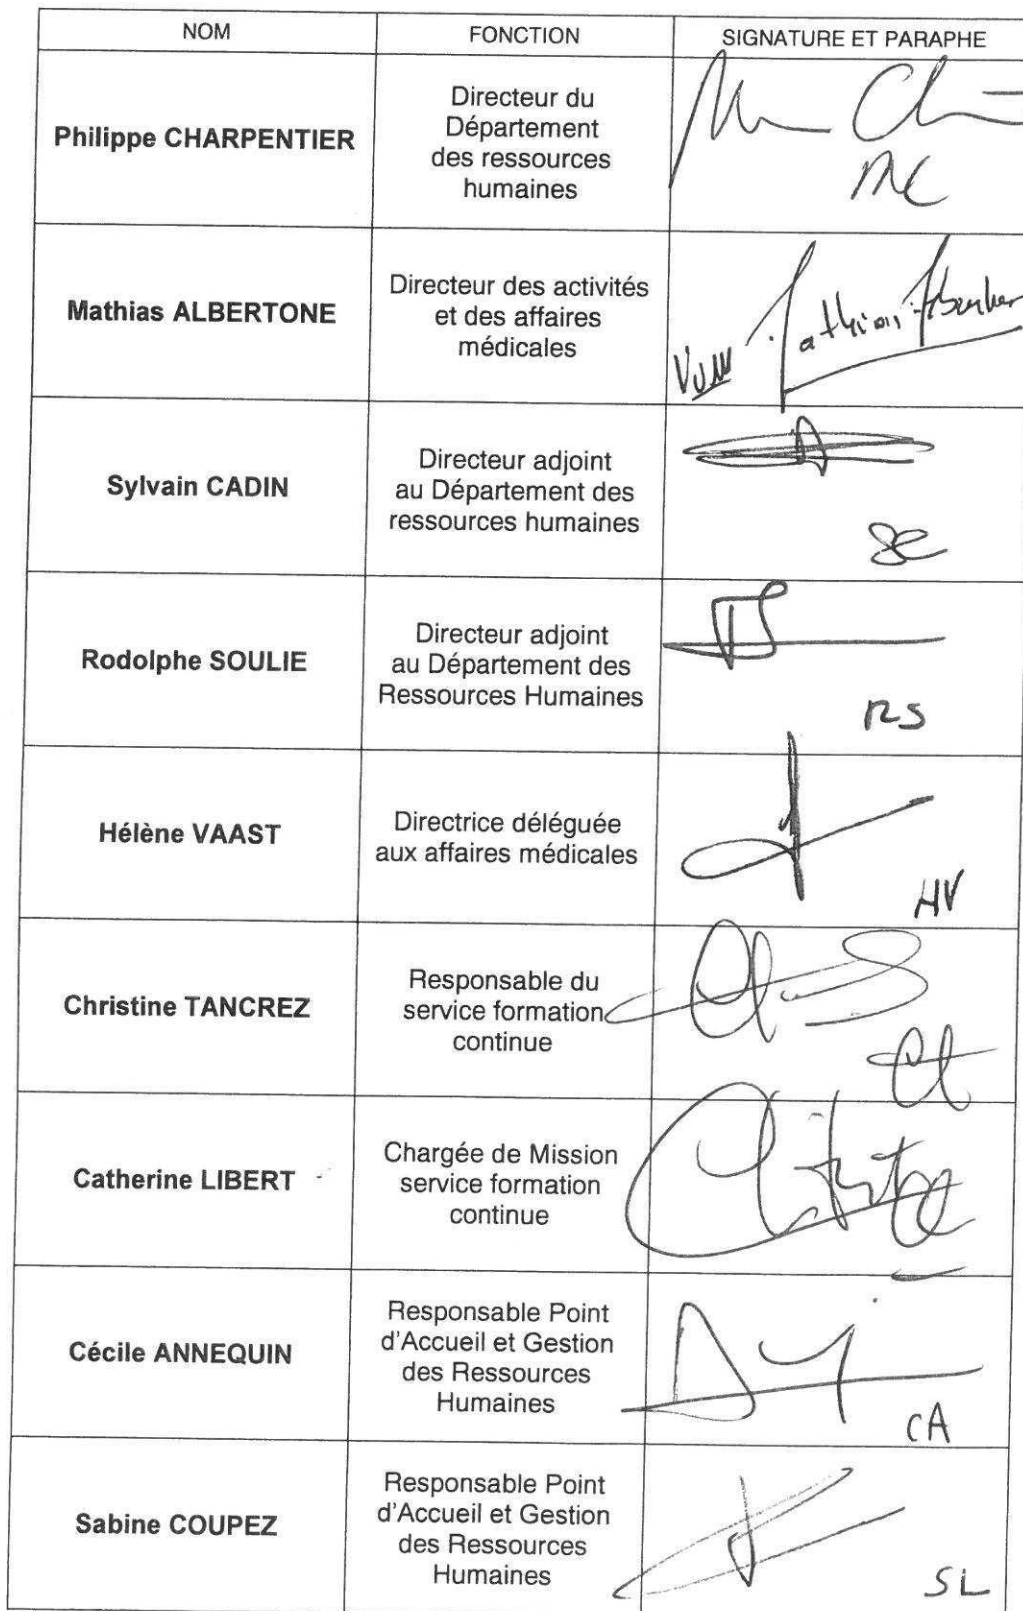 NOM FONCTION SIGNATURE ET PARAPHE
Philippe CHARPENTIER
Directeur du
Département
des ressources
humaines
Mathias ALBERTONE
Directeur des activités
et des affaires
médicales
Sylvain CADIN
Directeur adjoint
au Département des
ressources humaines
SC
Rodolphe SOULIE
Directeur adjoint
au Département des
Ressources Humaines
RS
Hélène VAAST
Directrice déléguée
aux affaires médicales
HV
Christine TANCREZ
Responsable du
service formation
continue
Ct
Catherine LIBERT
Chargée de Mission
service formation
continue
Cécile ANNEQUIN
Responsable Point
d'Accueil et Gestion
des Ressources
Humaines
CA
Sabine COUPEZ
Responsable Point
d'Accueil et Gestion
des Ressources
Humaines
SL